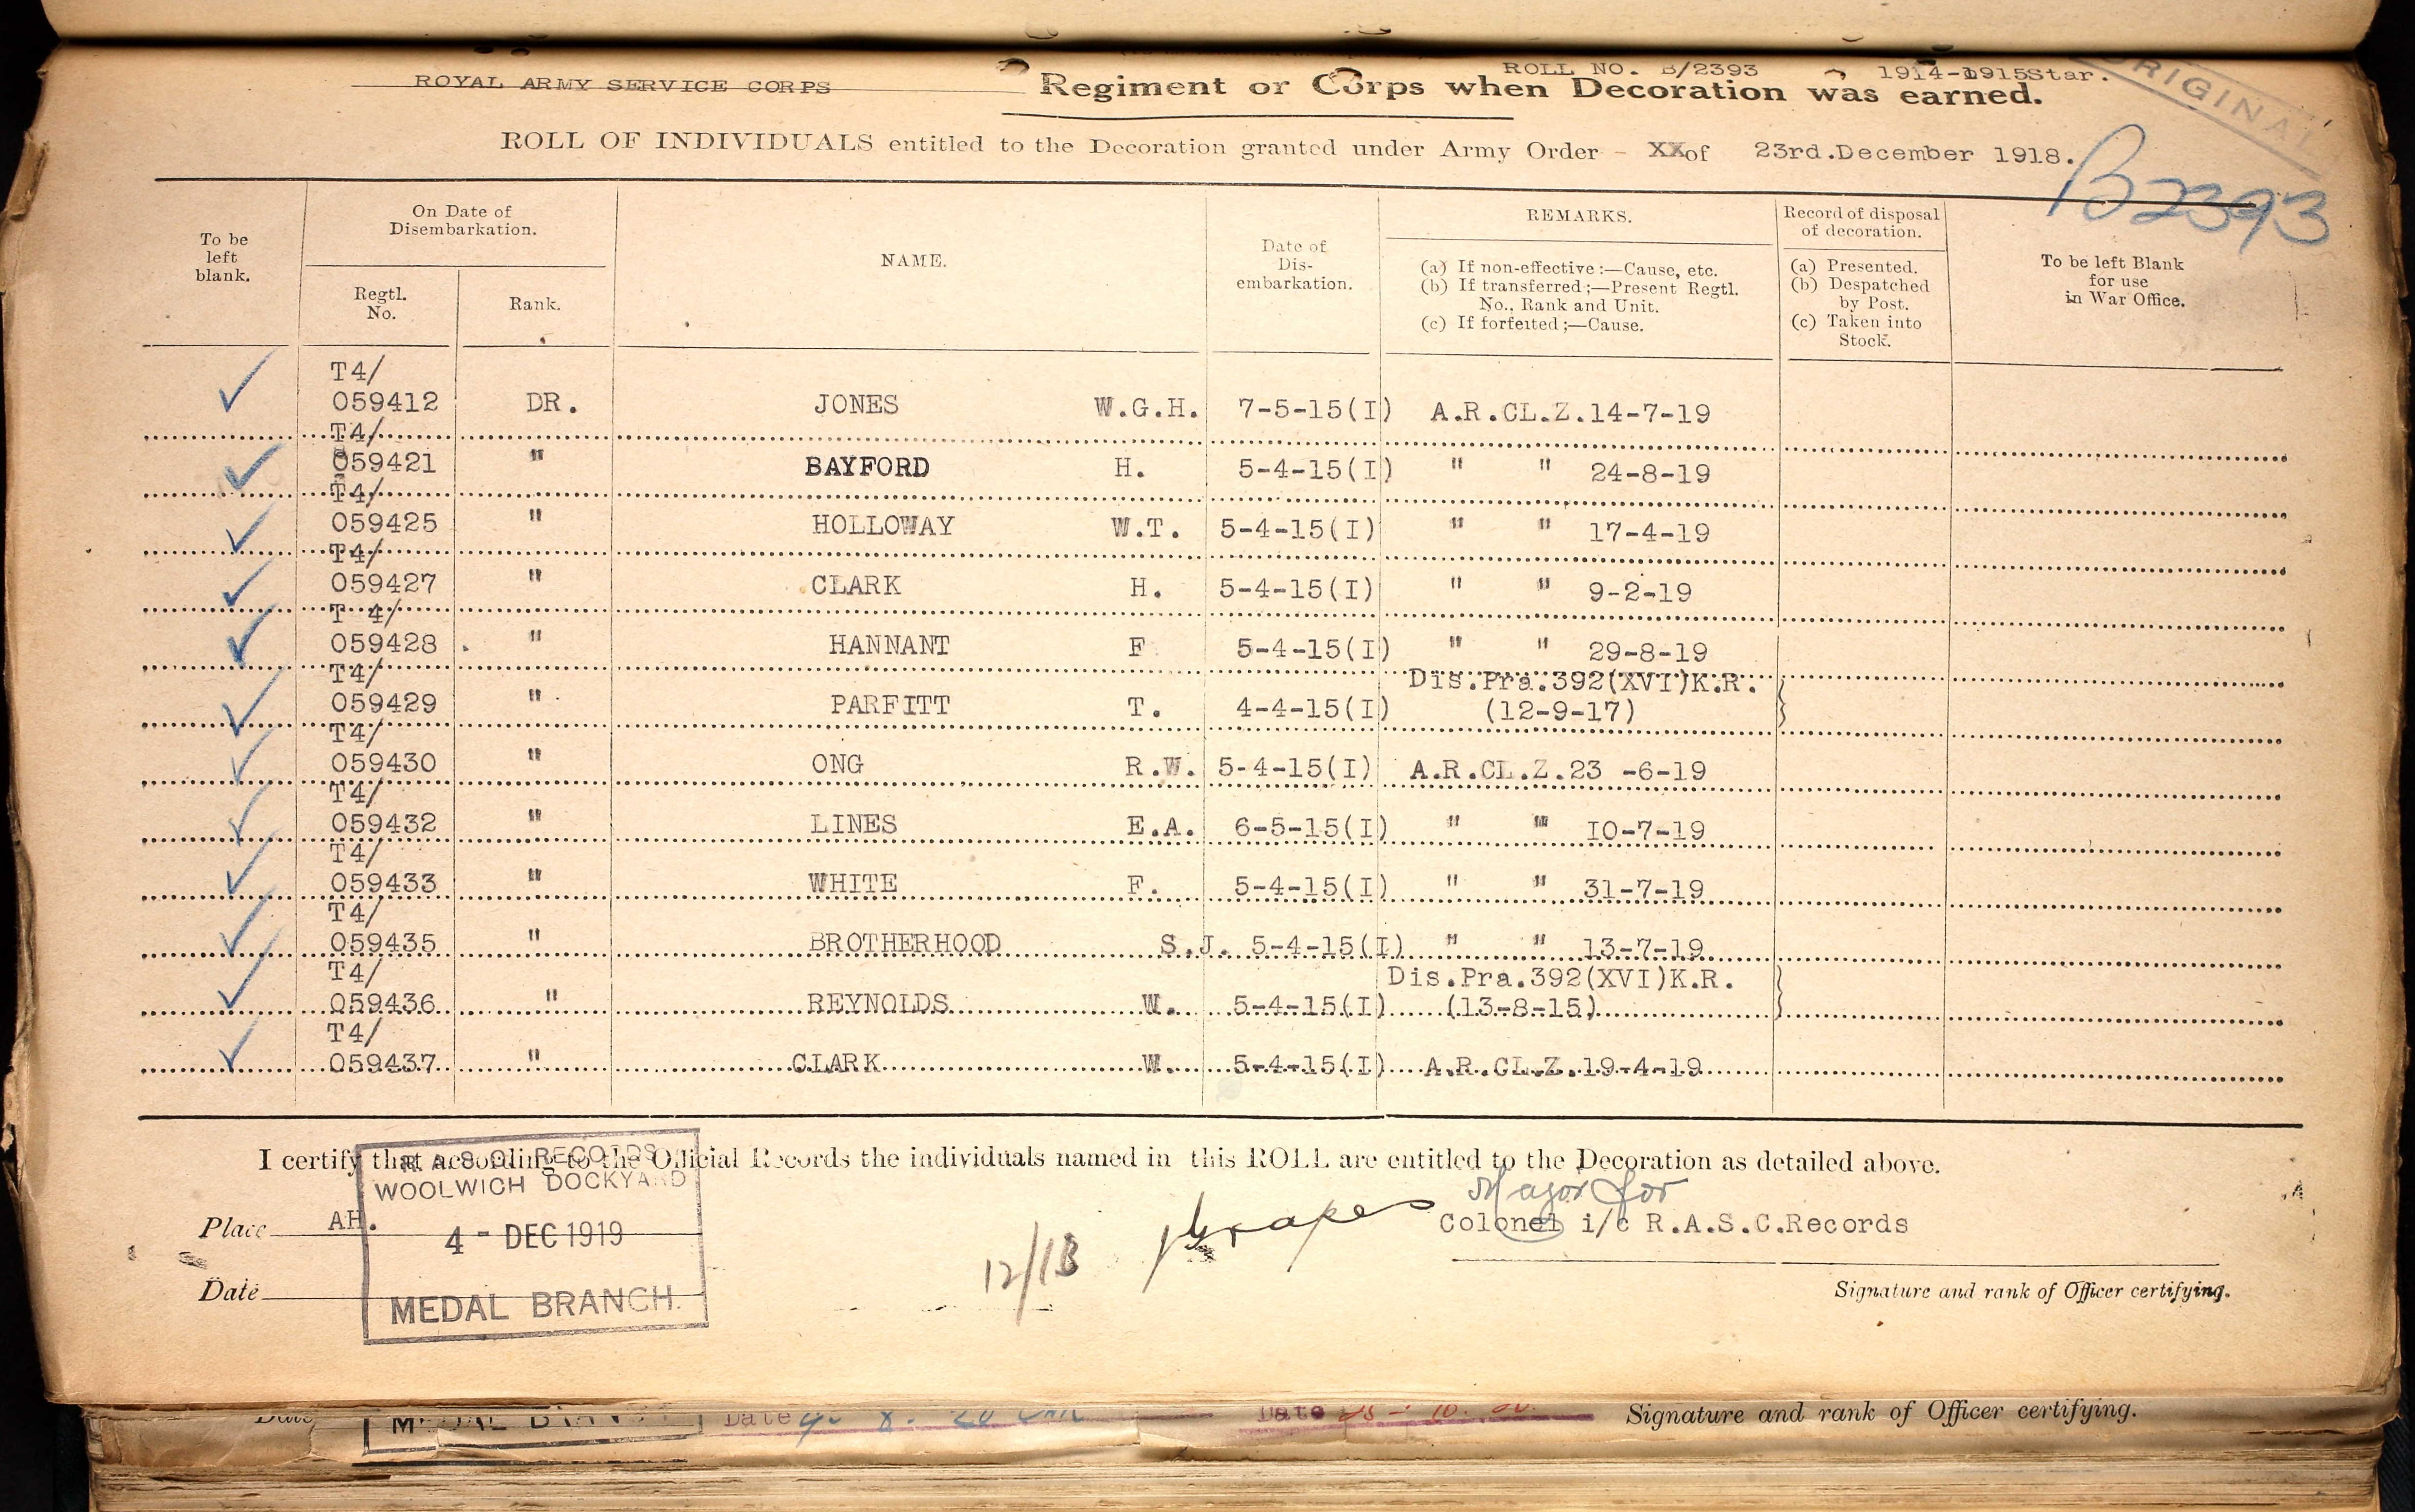 ROLL NO. B/2393 1914-1915Star.
ROYAL ARMY SERVICE CORPS Regiment or Corps when Decoration was earned.
ORIGINAL
ROLL OF INDIVIDUALS entitled to the Decoration granted under Army Order - XX of 23rd.December 1918.
B2393
To be left blank.
On Date of Disembarkation.
Regtl. No.
Rank.
NAME.
Date of Dis- embarkation.
REMARKS.
(a) If non-effective:—Cause, etc.
(b) If transferred;—Present Regtl. No., Rank and Unit.
(c) If forfeited;—Cause.
Record of disposal of decoration.
(a) Presented.
(b) Despatched by Post.
(c) Taken into Stock.
To be left Blank for use in War Office.
T4/
059412 DR. JONES W.G.H. 7-5-15(I) A.R.CL.Z.14-7-19
T4/
059421 " BAYFORD H. 5-4-15(I) " " 24-8-19
T4/
059425 " HOLLOWAY W.T. 5-4-15(I) " " 17-4-19
T4/
059427 " CLARK H. 5-4-15(I) " " 9-2-19
T 4/
059428 " HANNANT F 5-4-15(I) " " 29-8-19
T4/ Dis.Pra.392(XVI)K.R.
059429 " PARFITT T. 4-4-15(I) (12-9-17)
T4/
059430 " ONG R.W. 5-4-15(I) A.R.CL.Z.23 -6-19
T4/
059432 " LINES E.A. 6-5-15(I) " " 10-7-19
T4/
059433 " WHITE F. 5-4-15(I) " " 31-7-19
T4/
059435 " BROTHERHOOD S.J. 5-4-15(I) " " 13-7-19
T4/ Dis.Pra.392(XVI)K.R.
059436 " REYNOLDS W. 5-4-15(I) (13-8-15)
T4/
059437 " CLARK W. 5-4-15(I) A.R.CL.Z.19-4-19
I certify that according to the Official Records the individuals named in this ROLL are entitled to the Decoration as detailed above.
R.A.S.C. RECORDS
WOOLWICH DOCKYARD
4 - DEC 1919
MEDAL BRANCH.
Major for
Place AH. Colonel i/c R.A.S.C.Records
12/13
Date Signature and rank of Officer certifying.
Date MEDAL BRANCH Date Date Signature and rank of Officer certifying.